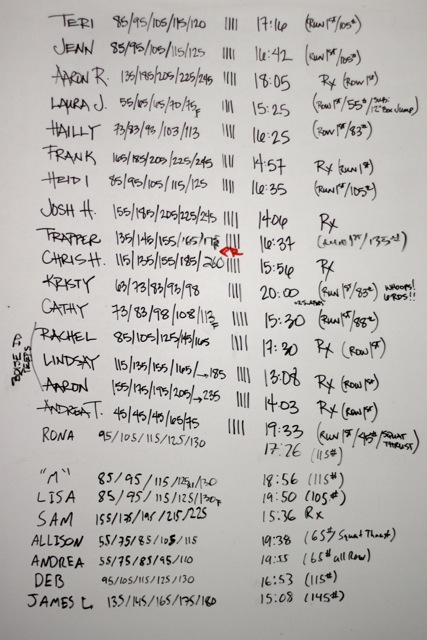 TERI 85/95/105/115/120 |||| 17:16 (RUN 1st/105#)
JENN 85/95/105/115/125 |||| 16:42 (RUN 1st/105#)
AARON R. 135/195/205/225/245 |||| 18:05 Rx (ROW 1st)
LAURA J. 55/65/65/70/75F |||| 15:25 (ROW 1st/55#/ 12" Box Jump)
HAILLY 73/83/93/103/113 |||| 16:25 (ROW 1st/83#)
FRANK 165/185/205/225/245 |||| 14:57 Rx (RUN 1st)
HEIDI 85/95/105/115/125 |||| 16:35 (RUN 1st/105#)
JOSH H. 155/185/205/225/245 |||| 14:06 Rx
TRAPPER 135/145/155/165/175F |||| 16:37 (RUN 1st/135#)
PR
CHRIS H. 115/135/155/185/200 |||| 15:56 Rx
KRISTY 63/73/83/93/98 |||| 20:00 (RUN 1st/83#) WHOOPS! 6 RDS!!
CATHY 73/83/98/108/113F |||| 15:30 (RUN 1st/88#)
RACHEL 85/105/125/145/165 |||| 17:30 Rx (ROW 1st)
LINDSAY 115/135/155/165/→185 |||| 13:08 Rx (ROW 1st)
AARON 155/175/195/205/→235 |||| 14:03 Rx (ROW 1st)
ANDREA T. 45/45/45/65/75 |||| 19:33 (RUN 1st/45#/SQUAT THRUST)
RONA 95/105/115/125/130 17:26 (115#)
"M" 85/95/115/125/130 18:56 (115#)
LISA 85/95/115/125/130F 19:50 (105#)
SAM 155/175/195/215/225 15:36 Rx
ALLISON 55/75/85/105/115 19:38 (65#/Squat Thrust)
ANDREA 55/75/85/95/110 19:55 (65# all Row)
DEB 95/105/115/125/130 16:53 (115#)
JAMES L. 135/145/165/175/180 15:08 (145#)